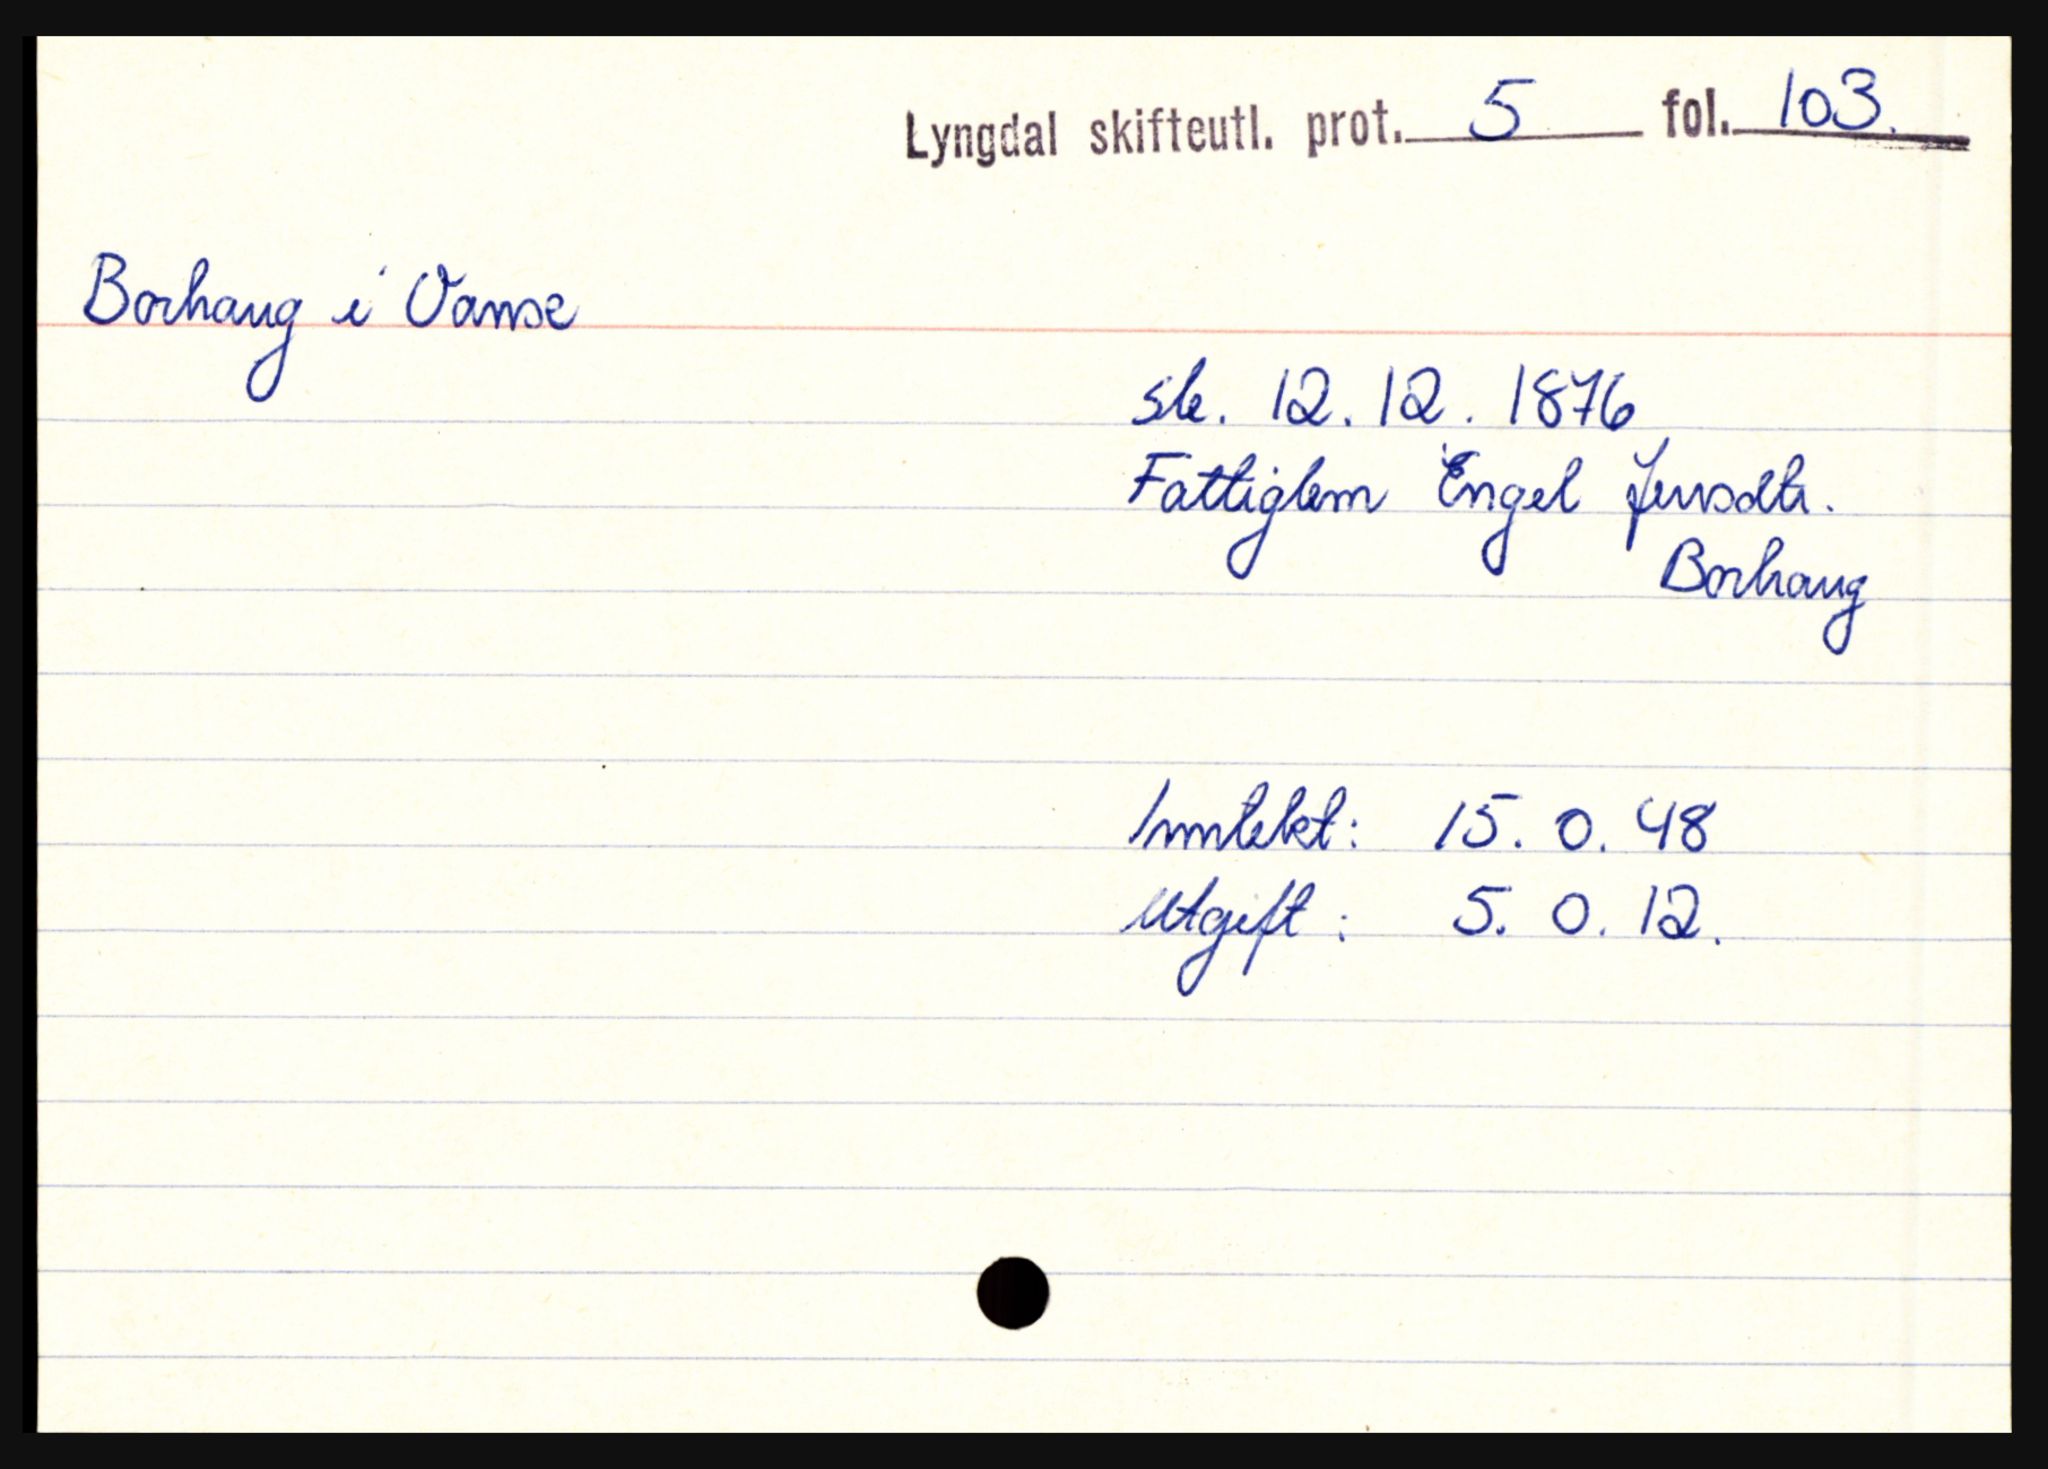 Lyngdal skifteutl. prot. 5 fol. 103.
Borhaug i Vanse
sk. 12.12.1876
Fattiglem Engel Jensdtr.
Borhaug
Inntekt: 15. 0. 48
Utgift: 5. 0. 12.